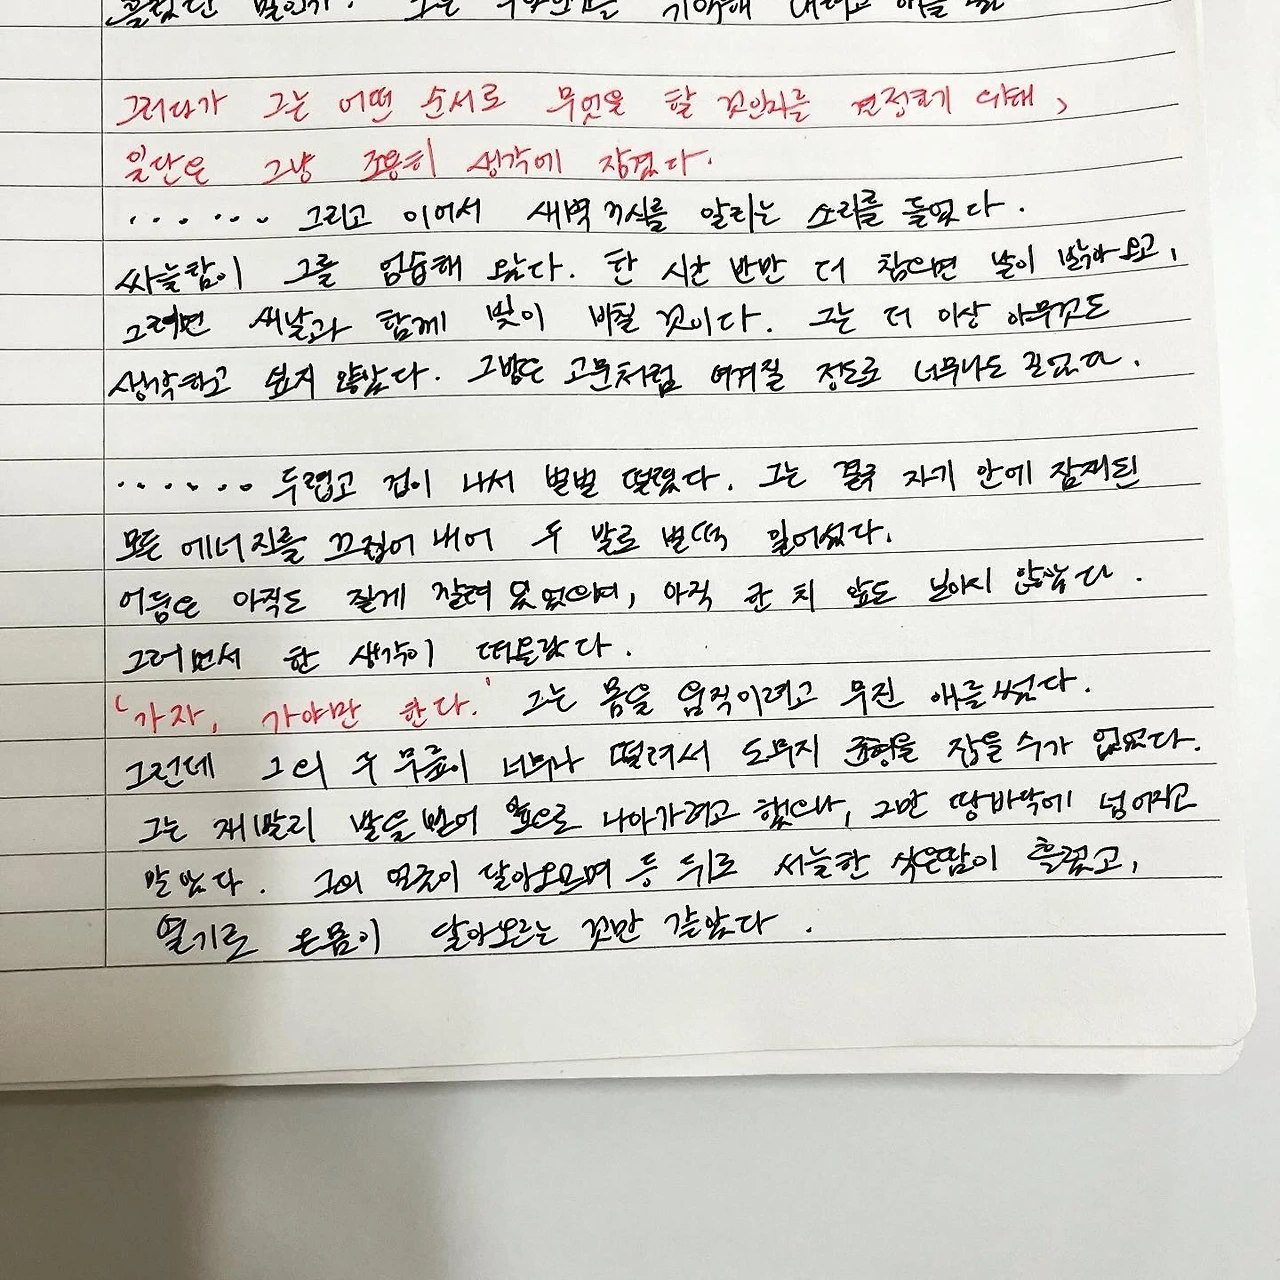 그러다가 그는 어떤 순서로 무엇을 할 것인지를 결정하기 위해,
일단은 그냥 조용히 생각에 잠겼다.
...... 그리고 이어서 새벽 7시를 알리는 소리를 들었다.
싸늘함이 그를 엄습해 왔다. 한 시간 반만 더 참으면 날이 밝아 오고,
그러면 새날과 함께 빛이 비칠 것이다. 그는 더 이상 아무것도
생각하고 싶지 않았다. 그밤은 고문처럼 여겨질 정도로 너무나도 길었다.
...... 두렵고 겁이 나서 벌벌 떨렸다. 그는 결국 자기 안에 잠재된
모든 에너지를 끄집어 내어 두 발로 벌떡 일어섰다.
어둠은 아직도 짙게 깔려 있었으며, 아직 한 치 앞도 보이지 않았다.
그러면서 한 생각이 떠올랐다.
'가자, 가야만 한다.' 그는 몸을 움직이려고 무진 애를 썼다.
그런데 그의 두 무릎이 너무나 떨려서 도무지 균형을 잡을 수가 없었다.
그는 재빨리 발을 뻗어 앞으로 나아가려고 했으나, 그만 땅바닥에 넘어지고
말았다. 그의 얼굴이 달아오르며 등 뒤로 서늘한 식은땀이 흘렀고,
열기로 온몸이 달아오르는 것만 같았다.